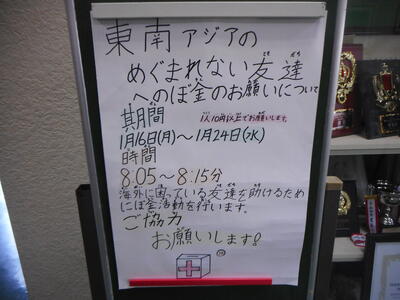 東南アジアの
めぐまれない友達
へのぼ金のお願いについて
期間
1人10円以上でお願いします。
1月16日(月)〜1月24日(水)
時間
8:05〜8:15分
海外に困っている友達を助けるため
にぼ金活動を行います。
ご協力
お願いします!